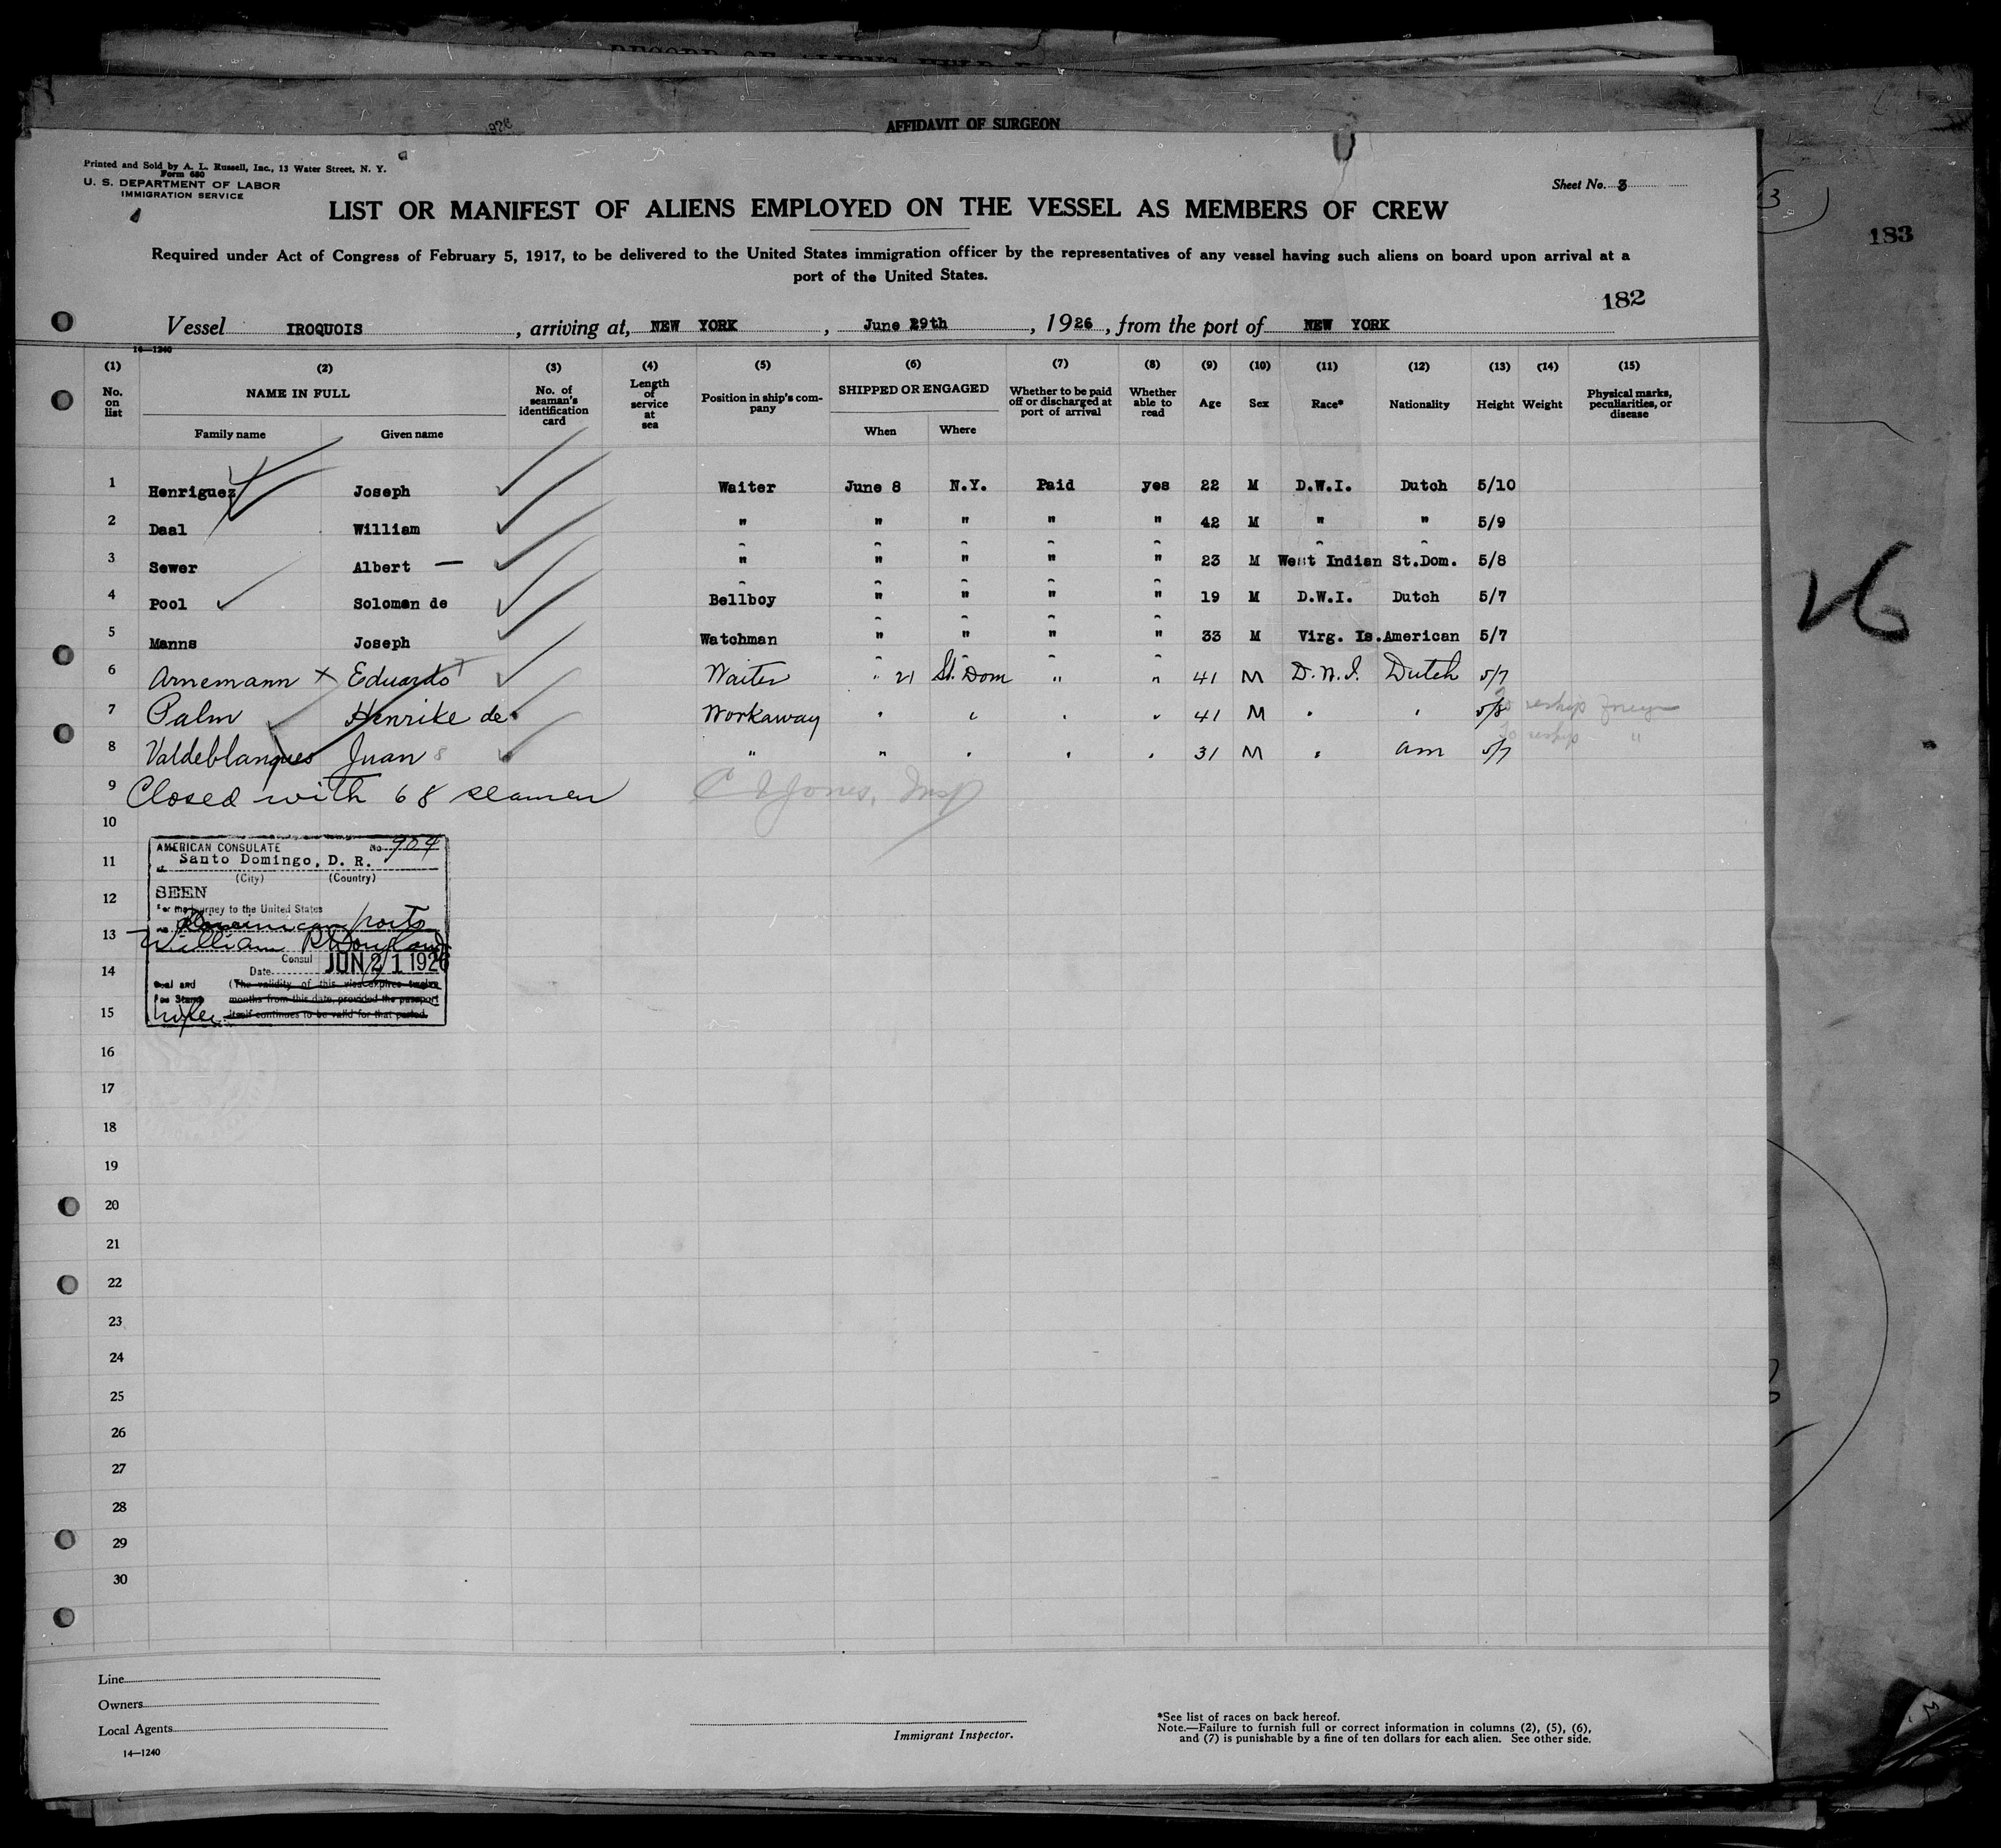 RECORD OF ALIENS HELD
926
AFFIDAVIT OF SURGEON
Printed and Sold by A. L. Russell, Inc., 13 Water Street, N. Y.
Form 680
U. S. DEPARTMENT OF LABOR
IMMIGRATION SERVICE
Sheet No. 3
3
183
LIST OR MANIFEST OF ALIENS EMPLOYED ON THE VESSEL AS MEMBERS OF CREW
Required under Act of Congress of February 5, 1917, to be delivered to the United States immigration officer by the representatives of any vessel having such aliens on board upon arrival at a
port of the United States.
182
Vessel IROQUOIS, arriving at, NEW YORK, June 29th, 1926, from the port of NEW YORK
16—1240
(1) (2) (3) (4) (5) (6) (7) (8) (9) (10) (11) (12) (13) (14) (15)
No. on list NAME IN FULL Family name Given name No. of seaman's identification card Length of service at sea Position in ship's company SHIPPED OR ENGAGED When Where Whether to be paid off or discharged at port of arrival Whether able to read Age Sex Race* Nationality Height Weight Physical marks, peculiarities, or disease
1 Henriguez Joseph Waiter June 8 N.Y. Paid yes 22 M D.W.I. Dutch 5/10
2 Daal William " " " " " 42 M " " 5/9
3 Sewer Albert — " " " " " 23 M West Indian St.Dom. 5/8
4 Pool Solomon de Bellboy " " " " 19 M D.W.I. Dutch 5/7
5 Manns Joseph Watchman " " " " 33 M Virg. Is. American 5/7
6 Arnemann x Eduardo Waiter " 21 St. Dom " " 41 M D.W.I. Dutch 5/7
7 Palm Henrike de Workaway " " " " 41 M " " 5/8 To reship foreign
8 Valdeblanques Juan 8 " " " " " 31 M " am 5/7 To reship "
9 Closed with 68 seamen C I Jones, Insp
10
11
12
13
14
15
16
17
18
19
20
21
22
23
24
25
26
27
28
29
30
AMERICAN CONSULATE No. 904
at Santo Domingo, D. R.
(City) (Country)
SEEN
For the journey to the United States
via Dominican ports
William
Consul
Date JUN 21 1926
Seal and (The validity of this visa expires twelve
Fee Stamp months from this date, provided the passport
No fee itself continues to be valid for that period.
26
Line
Owners
Local Agents
14—1240
Immigrant Inspector.
*See list of races on back hereof.
Note.—Failure to furnish full or correct information in columns (2), (5), (6),
and (7) is punishable by a fine of ten dollars for each alien. See other side.